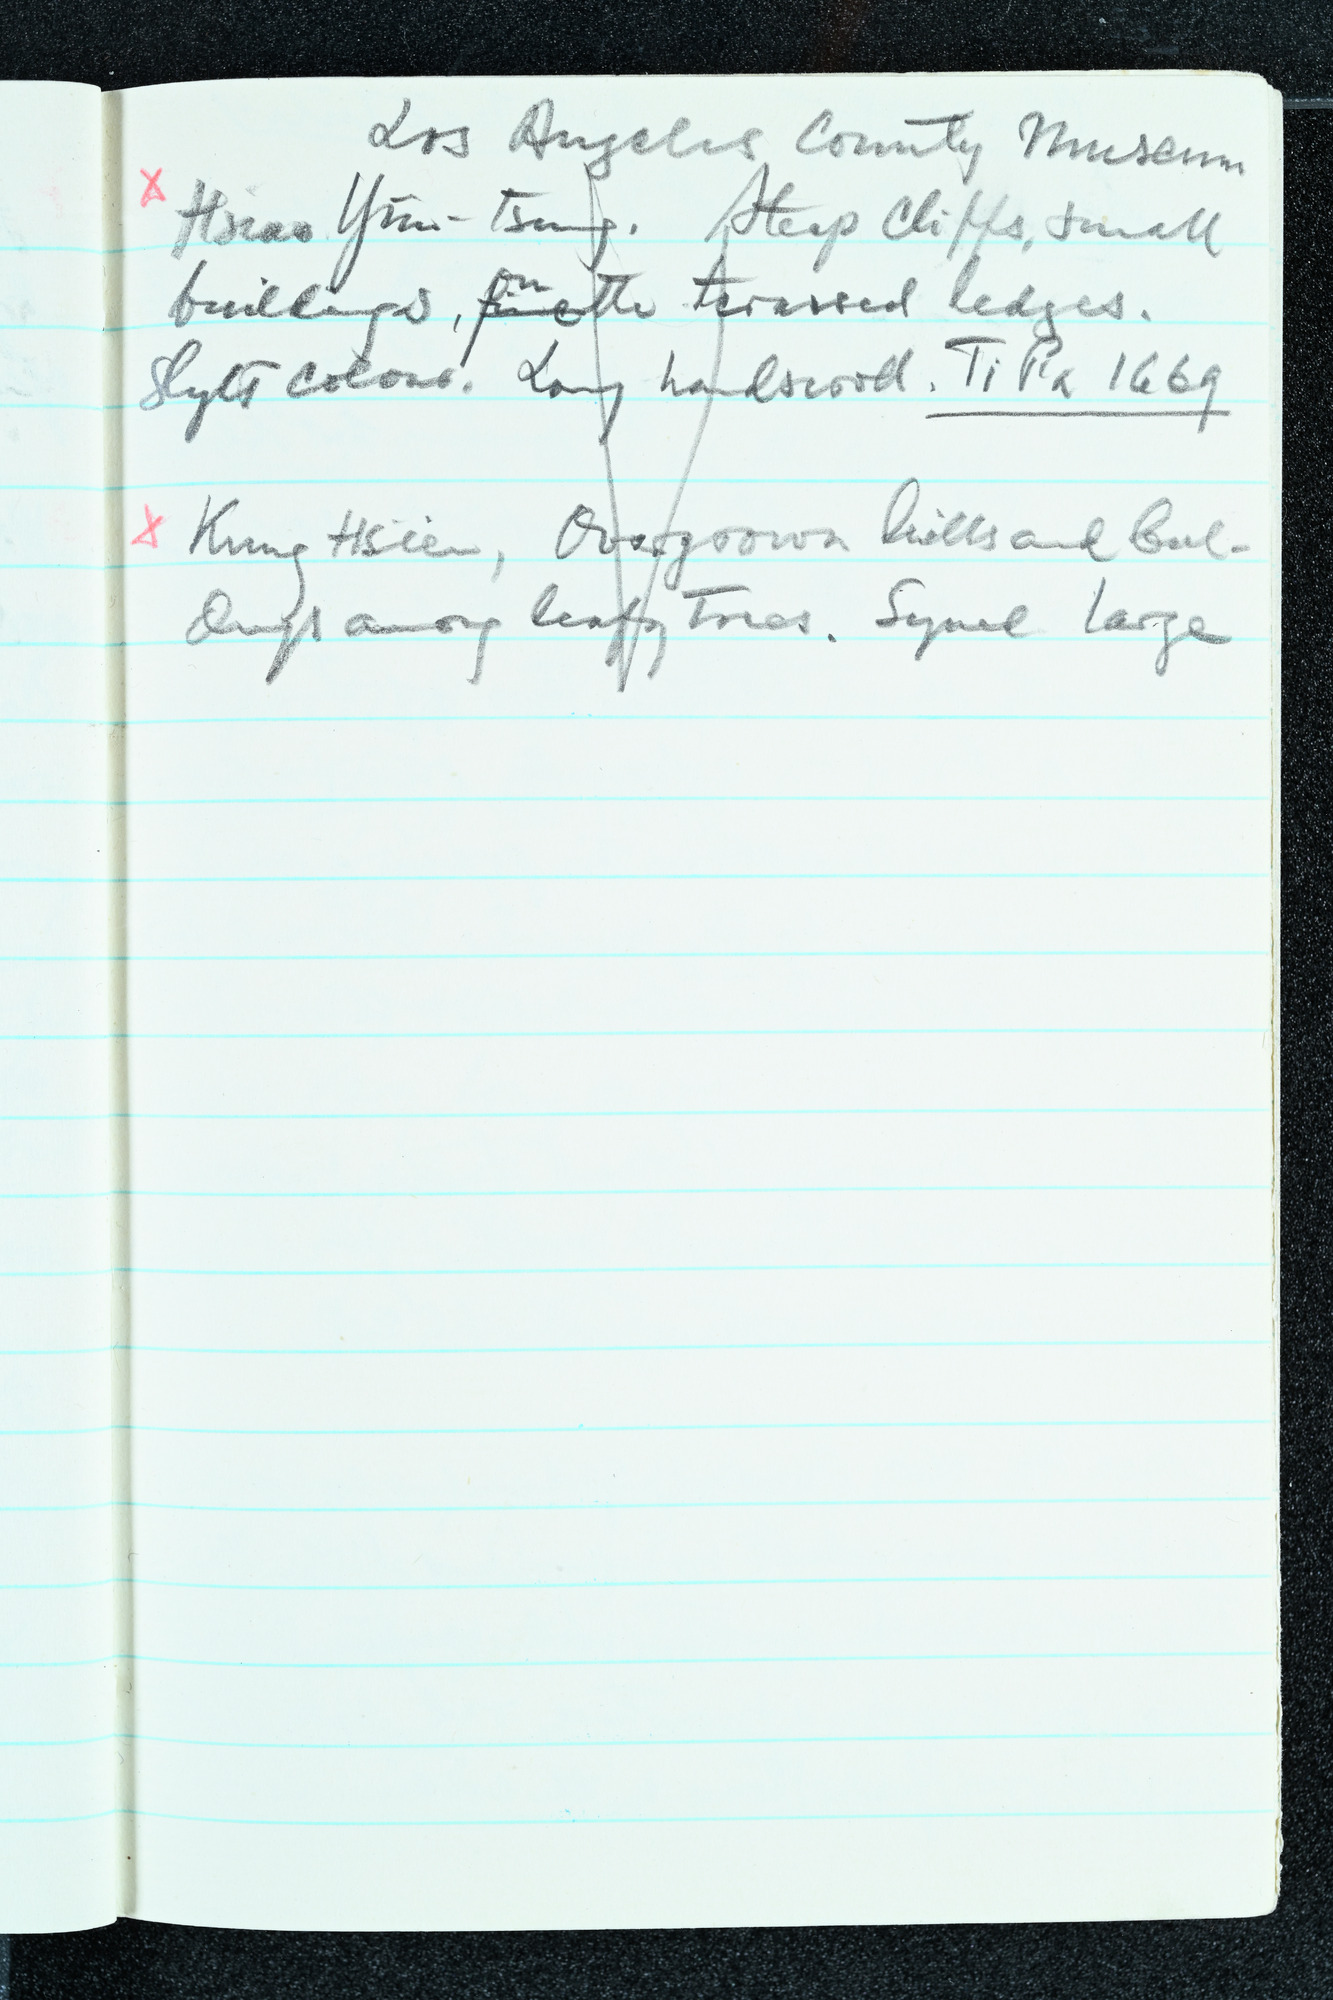 Los Angeles County Museum
x
Hsiao Yün-tsung. Steep cliffs, small
buildings, on the terassed ledges.
Slyts colours. Long handscroll. Ti Pa 1669
x
Kung Hsien, Overgrown hills and buil-
dings among leafy trees. Signed large